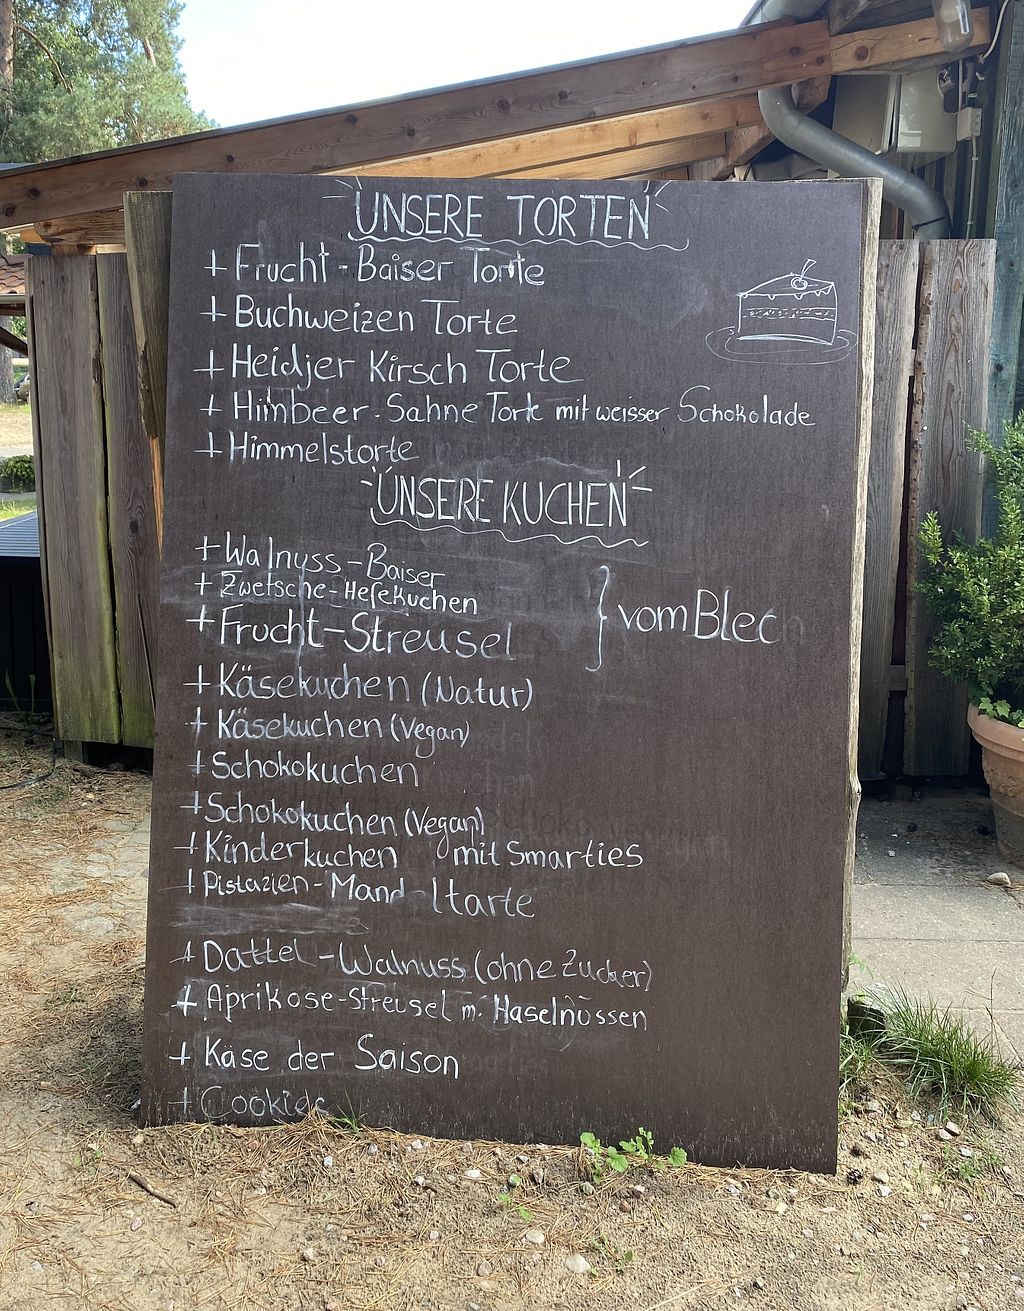 UNSERE TORTEN
+ Frucht-Baiser Torte
+ Buchweizen Torte
+ Heidjer Kirsch Torte
+ Himbeer-Sahne Torte mit weisser Schokolade
+ Himmelstorte
UNSERE KUCHEN
+ Walnuss-Baiser
+ Zwetsche-Hefekuchen
+ Frucht-Streusel
} vom Blech
+ Käsekuchen (Natur)
+ Käsekuchen (Vegan)
+ Schokokuchen
+ Schokokuchen (Vegan)
+ Kinderkuchen mit Smarties
+ Pistazien-Mandeltarte
+ Dattel-Walnuss (ohne Zucker)
+ Aprikose-Streusel m. Haselnüssen
+ Käse der Saison
+ Cookies